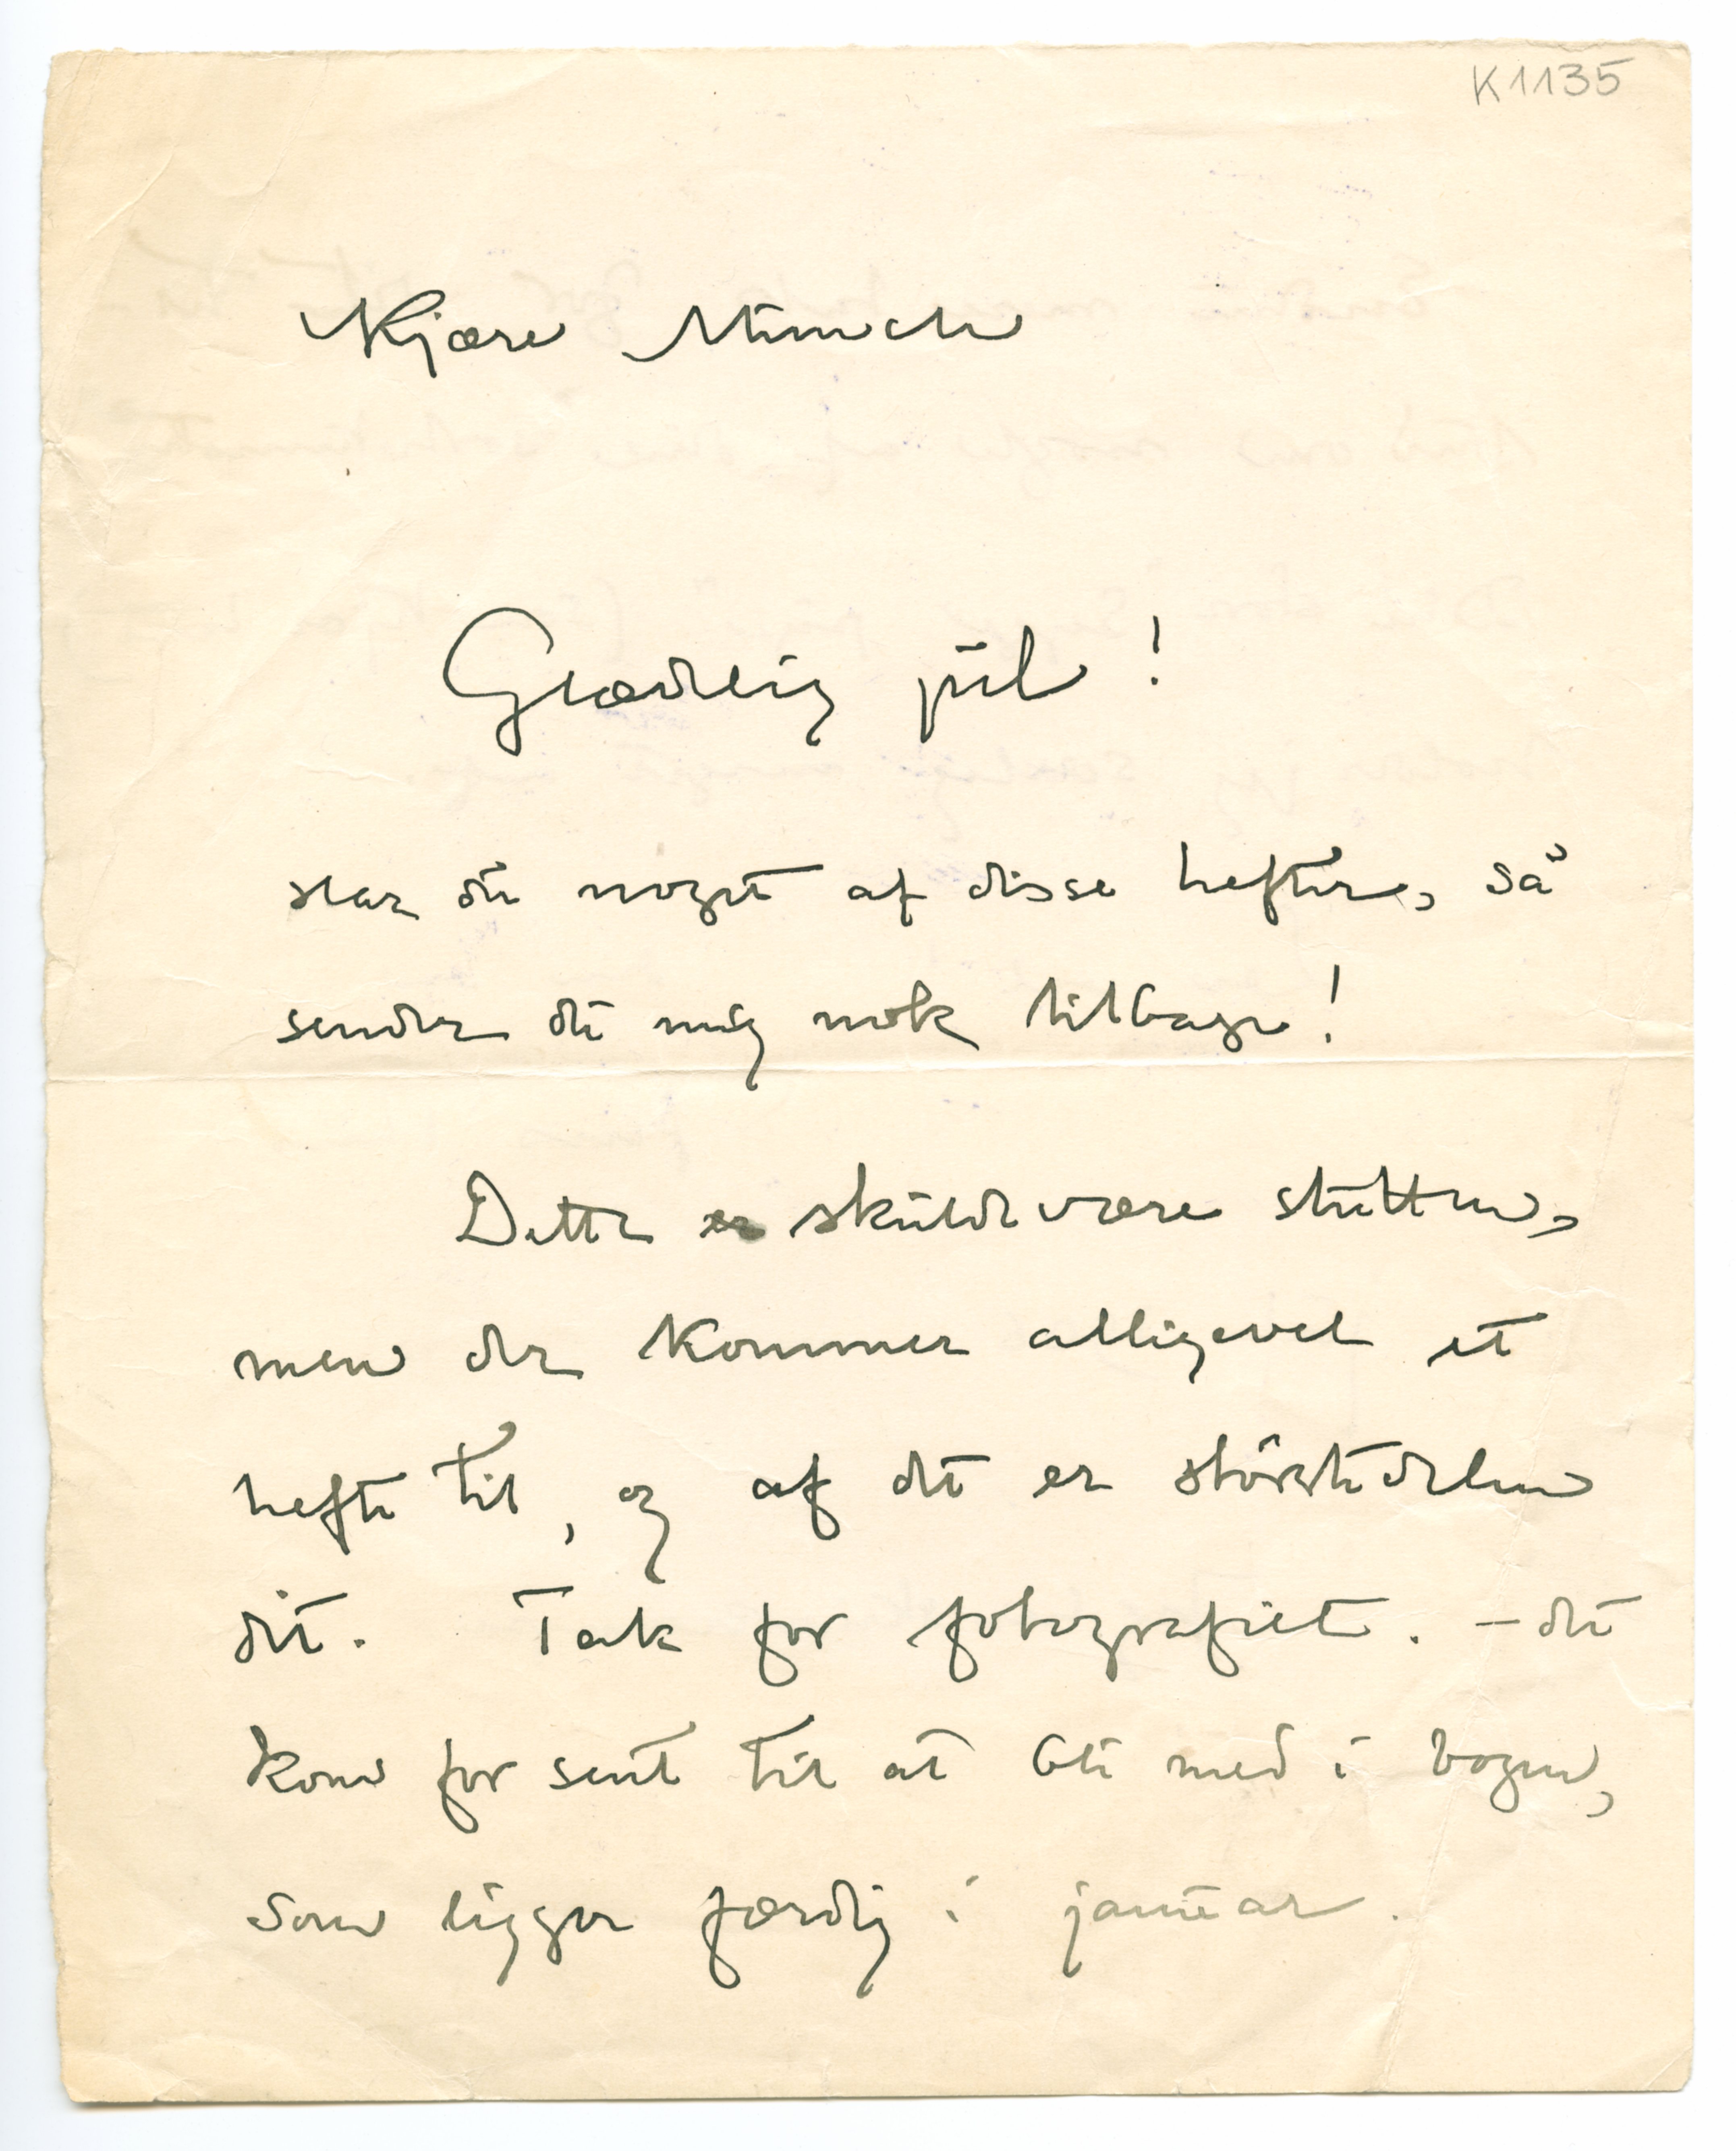 K1135
Kjære Munch
Glædelig jul!
Har du noget af disse hefter, så
sender du mig nok tilbage!
Dette er skulde være slutten,
men der kommer alligevel et
hefte til, og af det er störstedelen
dit. Tak for fotografiet. – det
kom for sent til at bli med i bogen,
som ligger færdig i januar.